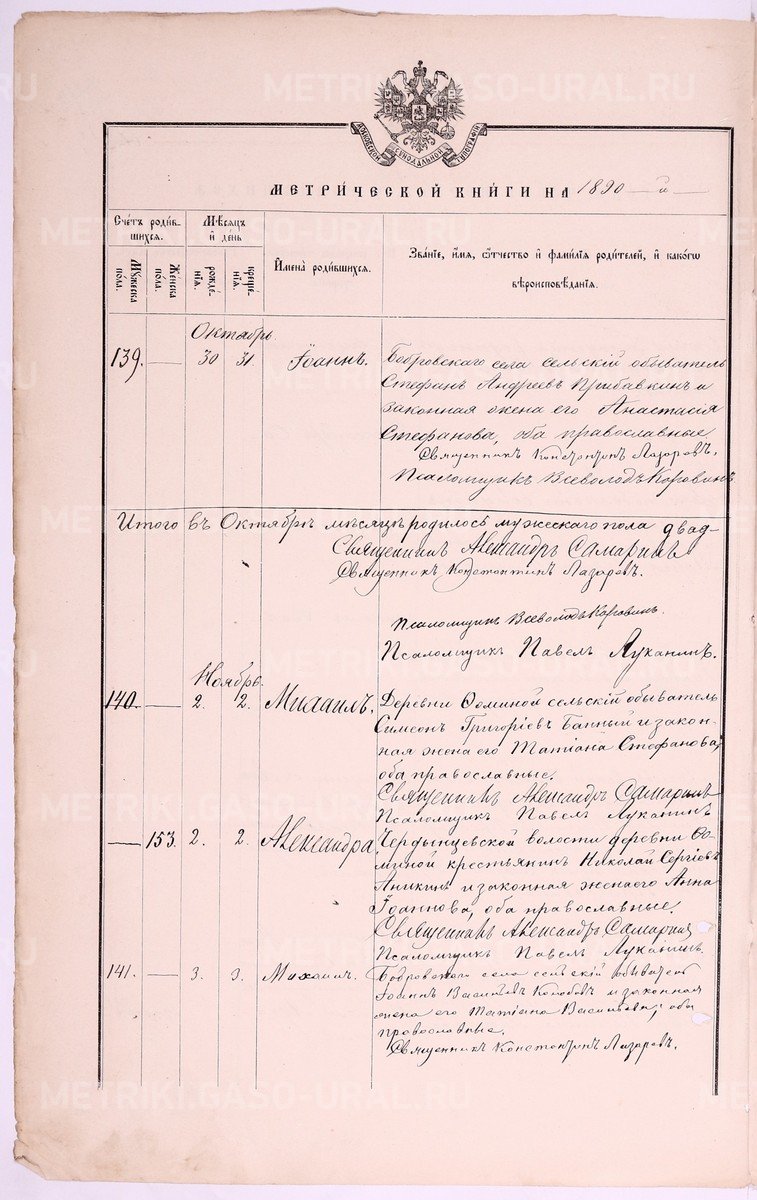 METRIKI.GASO-URAL.RU
МОСКОВСКОЙ СѴНОДАЛЬНОЙ ТИПОГРАФІИ
МЕТРИ́ЧЕСКОЙ КНИ́ГИ НА 1890 — й —
Сче́тъ роди́в-
шихся.
Мѣ́сяцъ
и҆ де́нь
Мꙋ́жеска
по́ла.
Же́нска
по́ла.
рожде́-
нїѧ.
креще́-
нїѧ.
И҆мена̀ роди́вшихся.
Зва́нїе, и҆́мѧ, ѻ҆́тчество и҆ фами́лїѧ роди́телей, и҆ како́гѡ
вѣроисповѣ́данїѧ.
Октябрь.
139. — 30 31. Іоаннъ. Бобровскаго села сельскій обыватель
Стефанъ Андреевъ Прибавкинъ и
законная жена его Анастасія
Стефанова, оба православные
Священникъ Константинъ Лазаревъ.
Псаломщикъ Всеволодъ Коровинъ
Итого въ Октябрѣ мѣсяцѣ родилось мужескаго пола двад-
Священникъ Александръ Самаринъ
Священникъ Константинъ Лазаревъ.
Псаломщикъ Всеволодъ Коровинъ.
Псаломщикъ Павелъ Луканинъ.
Ноябрь.
140. — 2. 2. Михаилъ. Деревни Ѳоминой сельскій обыватель
Симеонъ Григоріевъ Банный и закон-
ная жена его Татіана Стефанова,
оба православные.
Священникъ Александръ Самаринъ
Псаломщикъ Павелъ Луканинъ
— 153. 2. 2. Александра. Чердынцевской волости деревни Ѳо-
миной крестьянинъ Николай Сергіевъ
Аникинъ и законная жена его Анна
Іоаннова, оба православные.
Священникъ Александръ Самаринъ
Псаломщикъ Павелъ Луканинъ.
141. — 3. 3. Михаилъ. Бобровскаго села сельскій обыватель
Іоаннъ Васильевъ Колобовъ и законная
жена его Татіана Васильева, оба
православные.
Священникъ Константинъ Лазаревъ.
METRIKI.GASO-URAL.RU